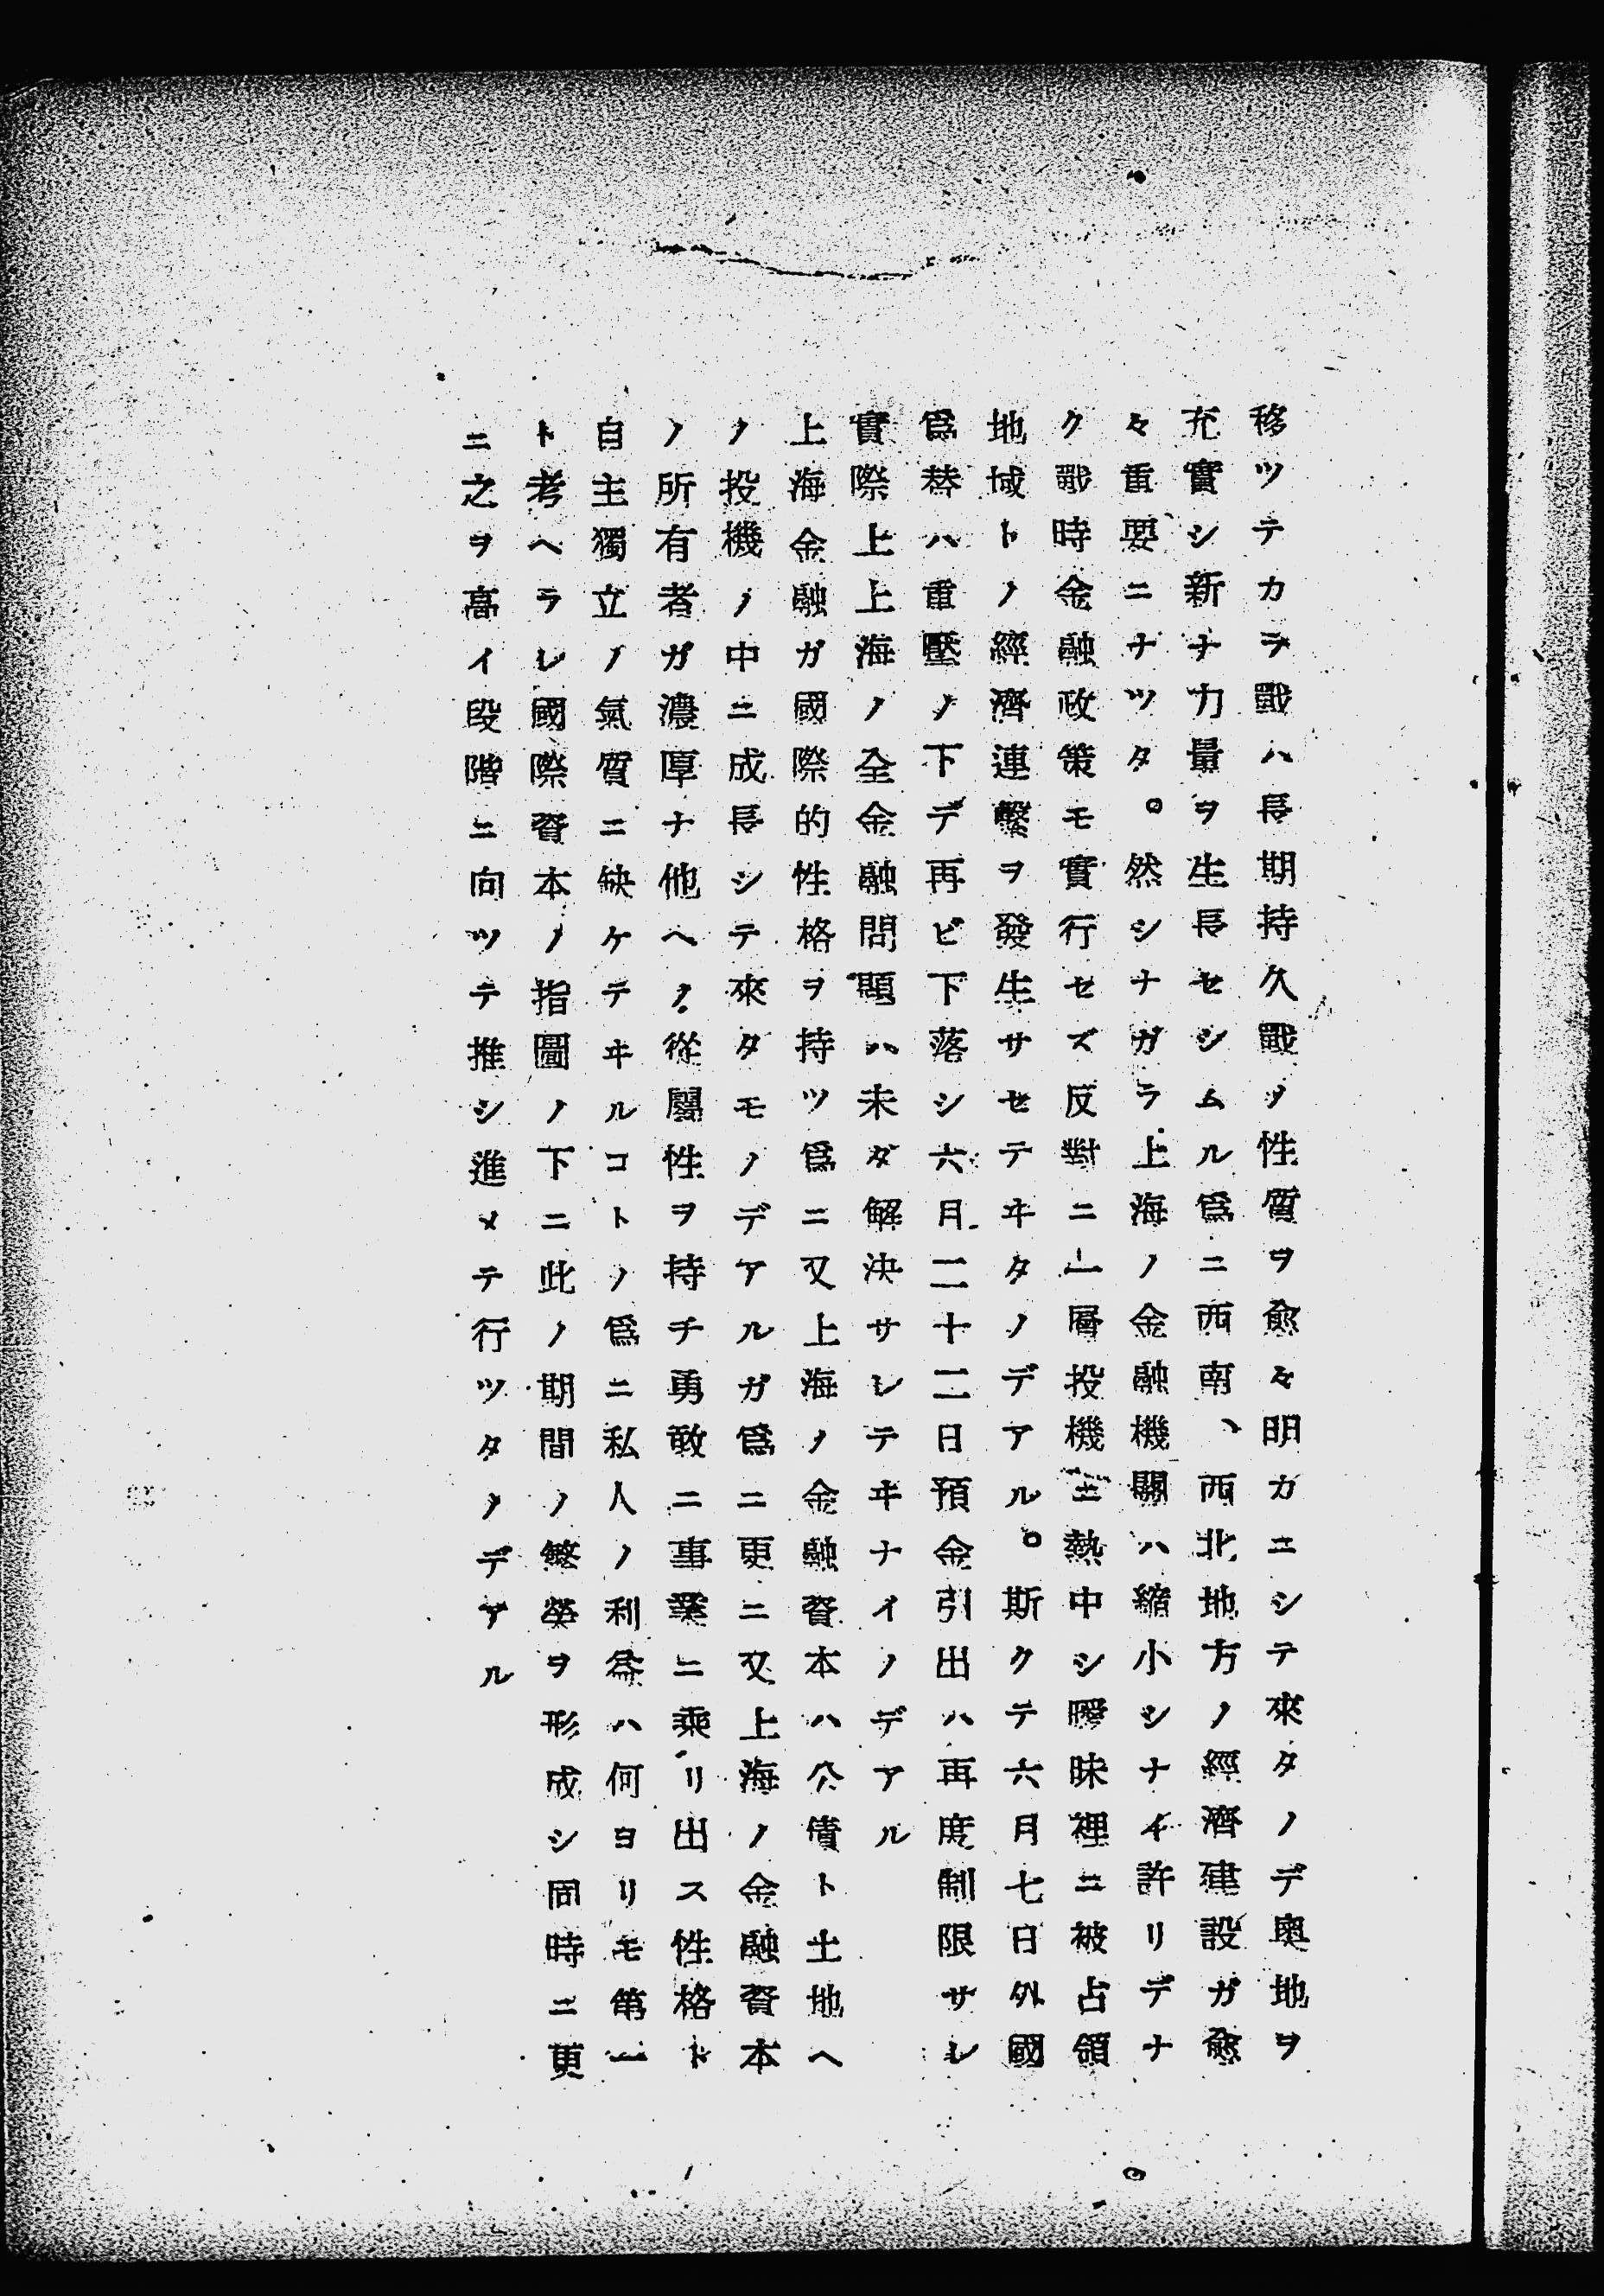 移ツテカラ戰ハ長期持久戰ノ性質ヲ愈々明カニシテ來タノデ奧地ヲ
充實シ新ナ力量ヲ生長セシムル爲ニ西南、西北地方ノ經濟建設ガ愈
々重要ニナツタ。然シナガラ上海ノ金融機關ハ縮小シナイ許リデナ
ク戰時金融政策モ實行セズ反對ニ一層投機ニ熱中シ曖昧裡ニ被占領
地域トノ經濟連繫ヲ發生サセテヰタノデアル。斯クテ六月七日外國
爲替ハ重壓ノ下デ再ビ下落シ六月二十二日預金引出ハ再度制限サレ
實際上上海ノ全金融問題ハ未ダ解決サレテヰナイノデアル
上海金融ガ國際的性格ヲ持ツ爲ニ又上海ノ金融資本ハ公債ト土地ヘ
ノ投機ノ中ニ成長シテ來タモノデアルガ爲ニ更ニ又上海ノ金融資本
ノ所有者ガ濃厚ナ他ヘノ從屬性ヲ持チ勇敢ニ事業ニ乘リ出ス性格ト
自主獨立ノ氣質ニ缺ケテヰルコトノ爲ニ私人ノ利益ハ何ヨリモ第一
ト考ヘラレ國際資本ノ指圖ノ下ニ此ノ期間ノ繁榮ヲ形成シ同時ニ更
ニ之ヲ高イ段階ニ向ツテ推シ進メテ行ツタノデアル